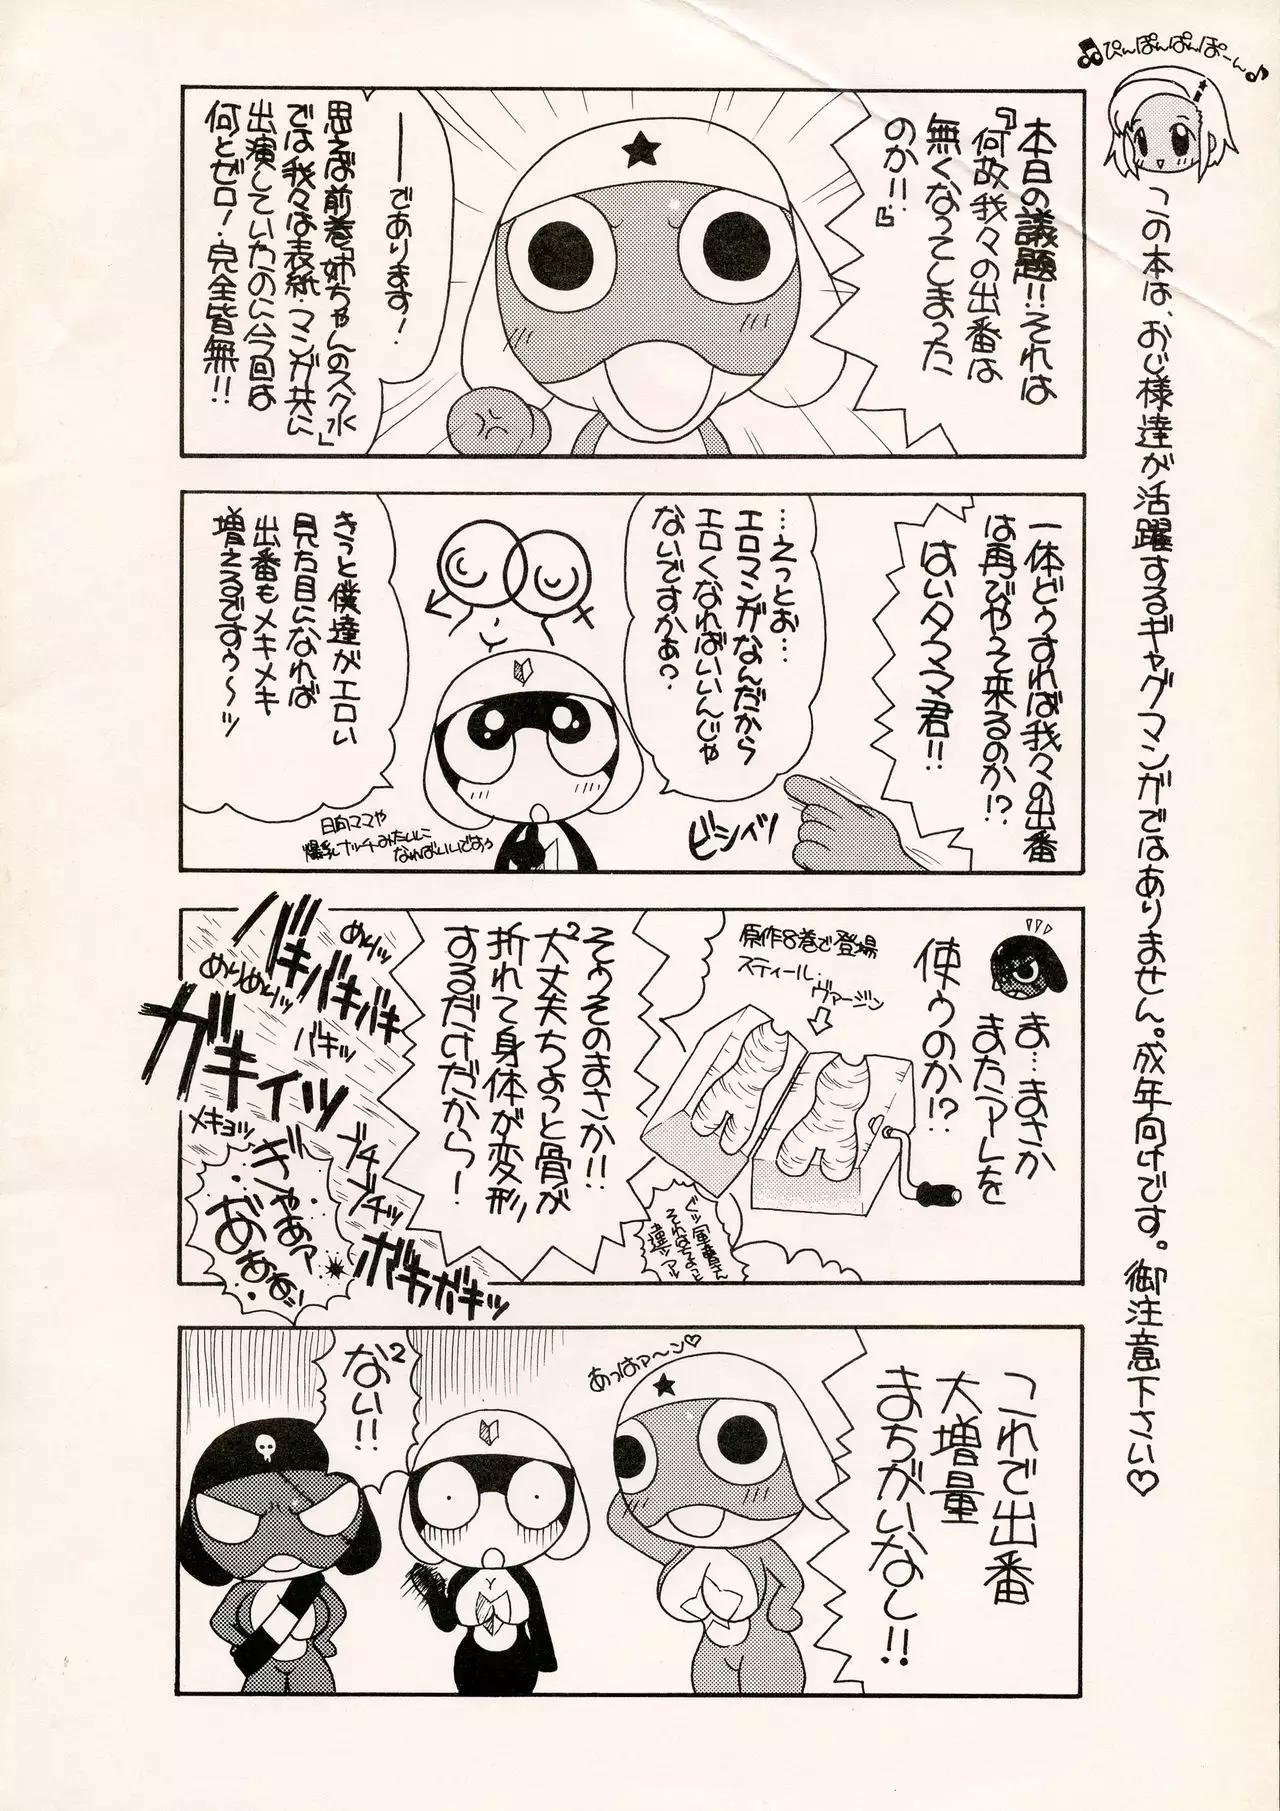 ぴんぽんぱんぽーん
この本は、おじ様達が活躍するギャグマンガではありません。成年向けです。御注意下さい♡
本日の議題!!それは
『何故我々の出番は
無くなってしまった
のか!!』
――であります!
思えば前巻『姉ちゃんのスク水』
では我々は表紙・マンガ共に
出演していたのに今回は
何とゼロ!完全皆無!!
一体どぅすれば我々の出番
は再びやって来るのか!?
はいタママ君!!
…えっとぉ…
エロマンガなんだから
エロくなればいいんじゃ
ないですかぁ?
ビシィッ
きっと僕達がエロい
見た目になれば
出番もメキメキ
増えるですぅ〜ッ
日向ママや
爆乳ナッチーみたいに
なればいいですぅ
ま…まさか
またアレを
使ぅのか!?
原作8巻で登場
スティール・
ヴァージン
ぐッ軍曹さん
それはちょっと
違ッアッ
そぅそのまさか!!
大丈夫²ちょっと骨が
折れて身体が変形
するだけだから!
めりッ
バキバキバキ
めりめりッ
バキッ
ガキィッ
メキョッ
ブチ
ブチッ
ぎゃあァ
あぁぁ
ボキガキッ
これで出番
大増量
まちがいなし!!
あっはァ〜ン♡
ない²!!